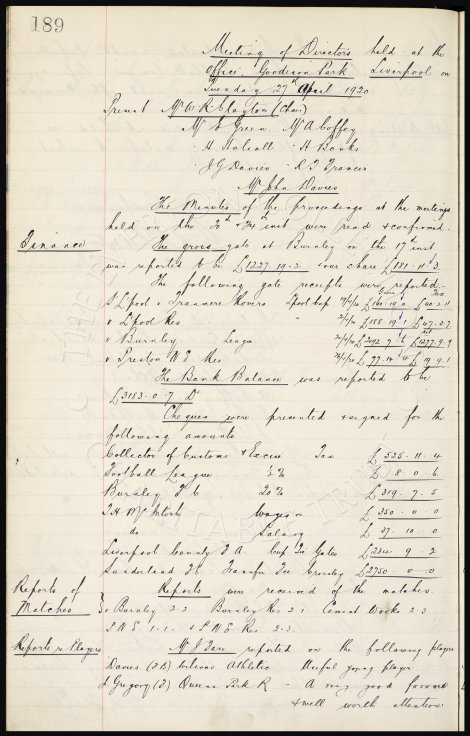 189
Meeting of Directors held at the
Office, Goodison Park Liverpool on
Tuesday 27th April 1920
Present Mr W.R. Clayton (Chair)
Mr E Green Mr A Coffey
" H Halsall " A Banks
" J G Davies " R T
Mr John Davies
The Minutes of the proceedings at the meetings
held on the 20th + 24th inst were read & confirmed.
Finance
The gross gate at Burnley on the 17th inst
was reported to be £1227.19.2 + our share £181.11.3
The following gate receipts were reported:-
Gross Tax
v L'pool v Tranmere Rovers L'pool Cup £40.2.11
v L'pool Res £188.19.1 £47.2.7
v Burnley League
v Preston N E Res £77.14. £19.9.1
The Bank Balance was reported to be
£3183.0.7 Dr
Cheques were presented & signed for the
following amounts
Collector of Customs & Excise Tax £525.11.4
Football League £8.0.6
Burnley F C 20% £319.7.5
T.H. McIntosh £350.0.0
do Salary £37.10.0
Liverpool County F A Cup Tie Gates £234.9.2
Sunderland F.C. Transfer Fee Crossley £2750.0.0
Reports of
Matches
Reports were received of the matches.
v Burnley 2.2 Burnley Res 2.1 Cement Works 2.3
P.N.E. 1.1. & P N E Res 2.3.
Reports re Players
Mr reported on the following players
Davies Athletic Useful young player
& Gregory (J) Queens Park R - A very good forward
& well worth attention.